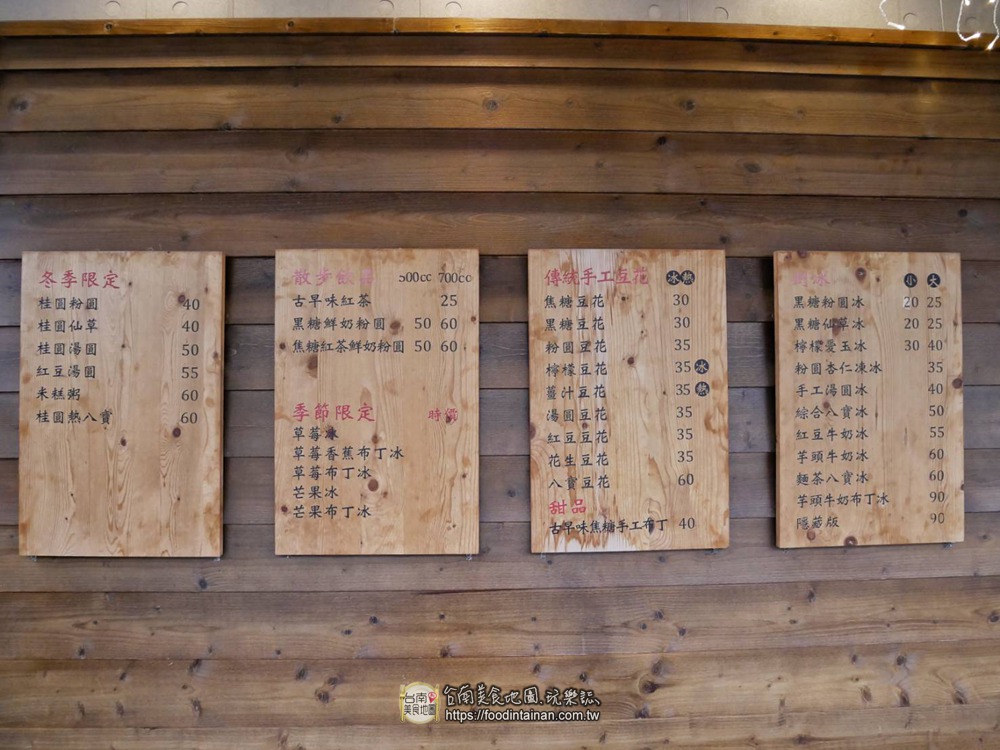 冬季限定
桂圓粉圓 40
桂圓仙草 40
桂圓湯圓 50
紅豆湯圓 55
米糕粥 60
桂圓熱八寶 60
散步飲品 500cc 700cc
古早味紅茶 25
黑糖鮮奶粉圓 50 60
焦糖紅茶鮮奶粉圓 50 60
季節限定 時價
草莓冰
草莓香蕉布丁冰
草莓布丁冰
芒果冰
芒果布丁冰
傳統手工豆花 冰 熱
焦糖豆花 30
黑糖豆花 30
粉圓豆花 35
檸檬豆花 35 冰
薑汁豆花 35 熱
湯圓豆花 35
紅豆豆花 35
花生豆花 35
八寶豆花 60
甜品
古早味焦糖手工布丁 40
剉冰 小 大
黑糖粉圓冰 20 25
黑糖仙草冰 20 25
檸檬愛玉冰 30 40
粉圓杏仁凍冰 35
手工湯圓冰 40
綜合八寶冰 50
紅豆牛奶冰 55
芋頭牛奶冰 60
麵茶八寶冰 60
芋頭牛奶布丁冰 90
隱藏版 90
台南美食地圖
台南美食地圖.玩樂誌
https://foodintainan.com.tw